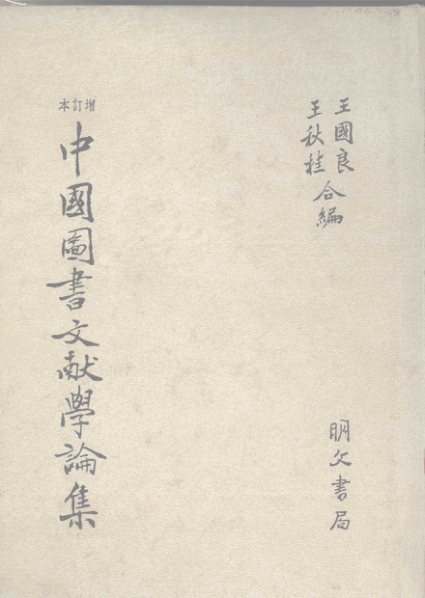 王國良
王秋桂合編
增訂本
中國圖書文献學論集
明文書局